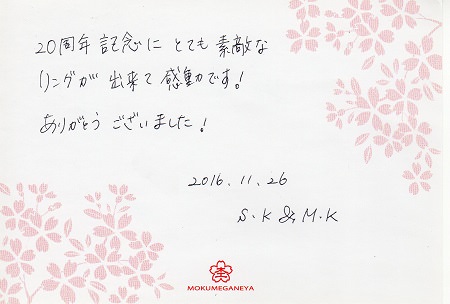 20周年記念に とても 素敵な
リングが 出来て 感動です!
ありがとう ございました!
2016.11.26
S.K & M.K
MOKUMEGANEYA